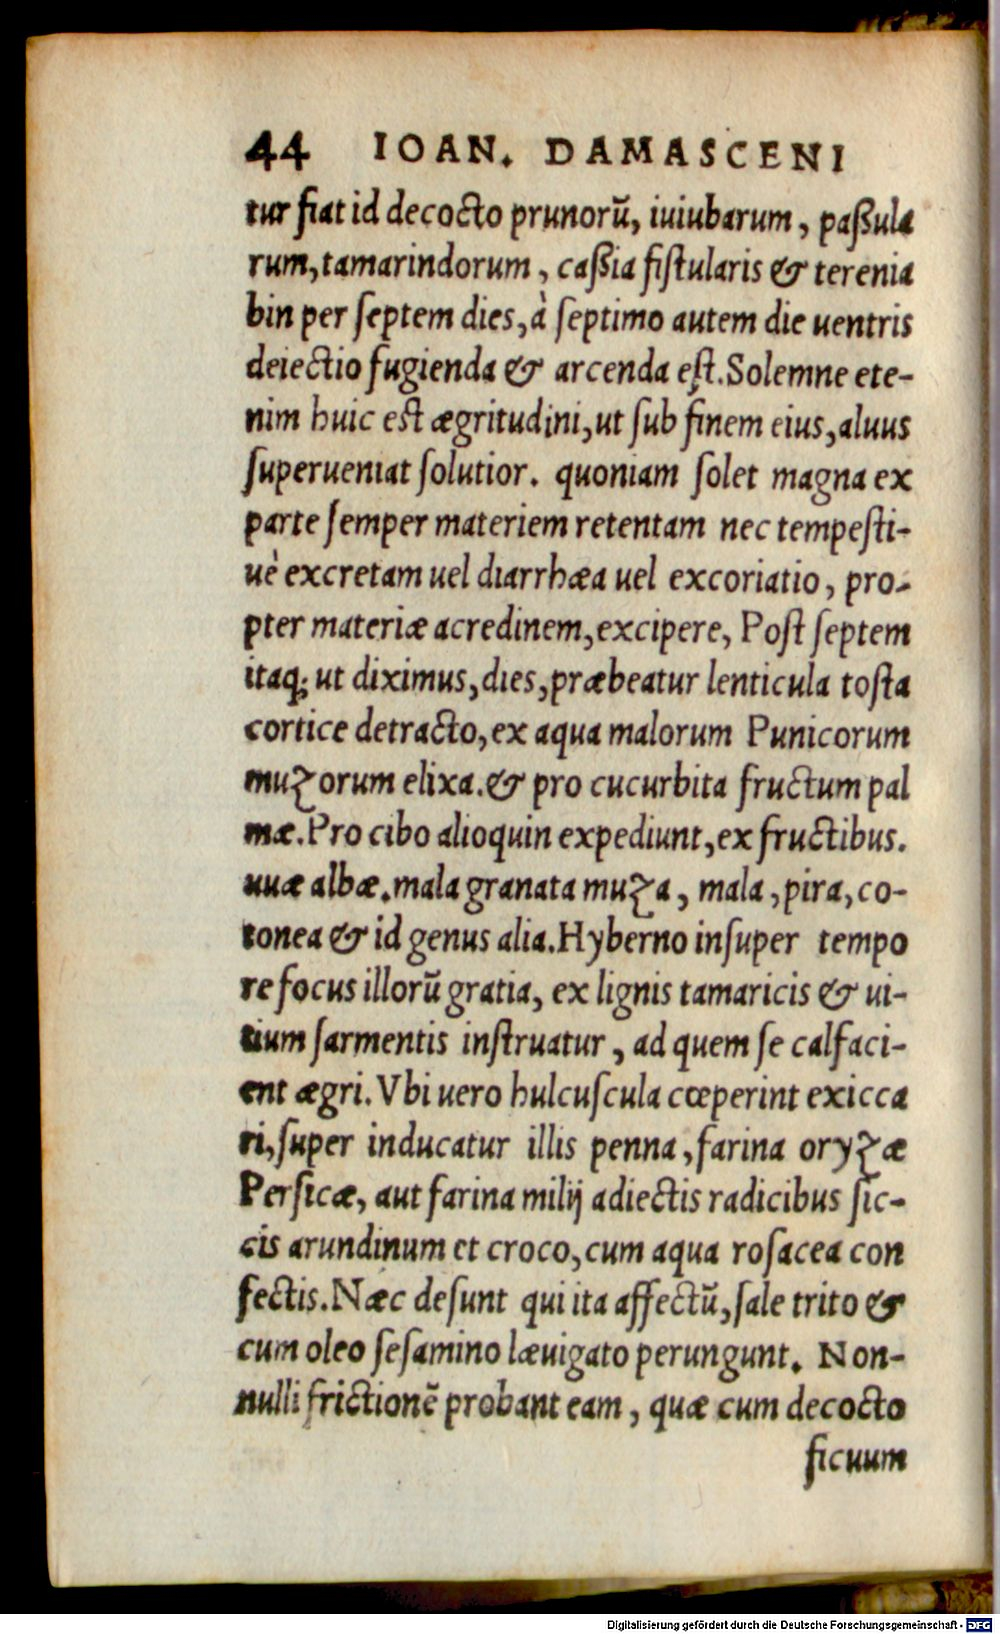 44 IOAN. DAMASCENI
tur fiat id decocto prunorũ, iuiubarum, paßula
rum, tamarindorum, caßia fiſtularis & terenia
bin per ſeptem dies, à ſeptimo autem die uentris
deiectio fugienda & arcenda eſt. Solemne ete-
nim huic est ægritudini, ut ſub finem eius, aluus
ſuperueniat ſolutior. quoniam ſolet magna ex
parte ſemper materiem retentam nec tempeſti-
uè excretam uel diarrhæa uel excoriatio, pro-
pter materiæ acredinem, excipere, Poſt ſeptem
itaq; ut diximus, dies, præbeatur lenticula toſta
cortice detracto, ex aqua malorum Punicorum
muzorum elixa. & pro cucurbita fructum pal
mæ. Pro cibo alioquin expediunt, ex fructibus.
uuæ albæ. mala granata muza, mala, pira, co-
tonea & id genus alia. Hyberno inſuper tempo
re focus illorũ gratia, ex lignis tamaricis & ui-
tium ſarmentis inſtruatur, ad quem ſe calfaci-
ent ægri. Vbi uero hulcuſcula cœperint exicca
ri, ſuper inducatur illis penna, farina oryzæ
Perſicæ, aut farina milij adiectis radicibus ſic-
cis arundinum et croco, cum aqua roſacea con
fectis. Næc deſunt qui ita affectũ, ſale trito &
cum oleo ſeſamino læuigato perungunt. Non-
nulli frictionẽ probant eam, quæ cum decocto
ficuum
Digitalisierung gefördert durch die Deutsche Forschungsgemeinschaft - DFG